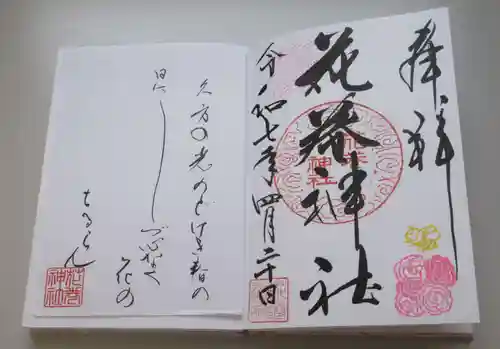 奉拝
花 神社
令和七年四月二十日
神社
久方の光のどけき春の
日に し づ心なく
花の
ちるらん
神社